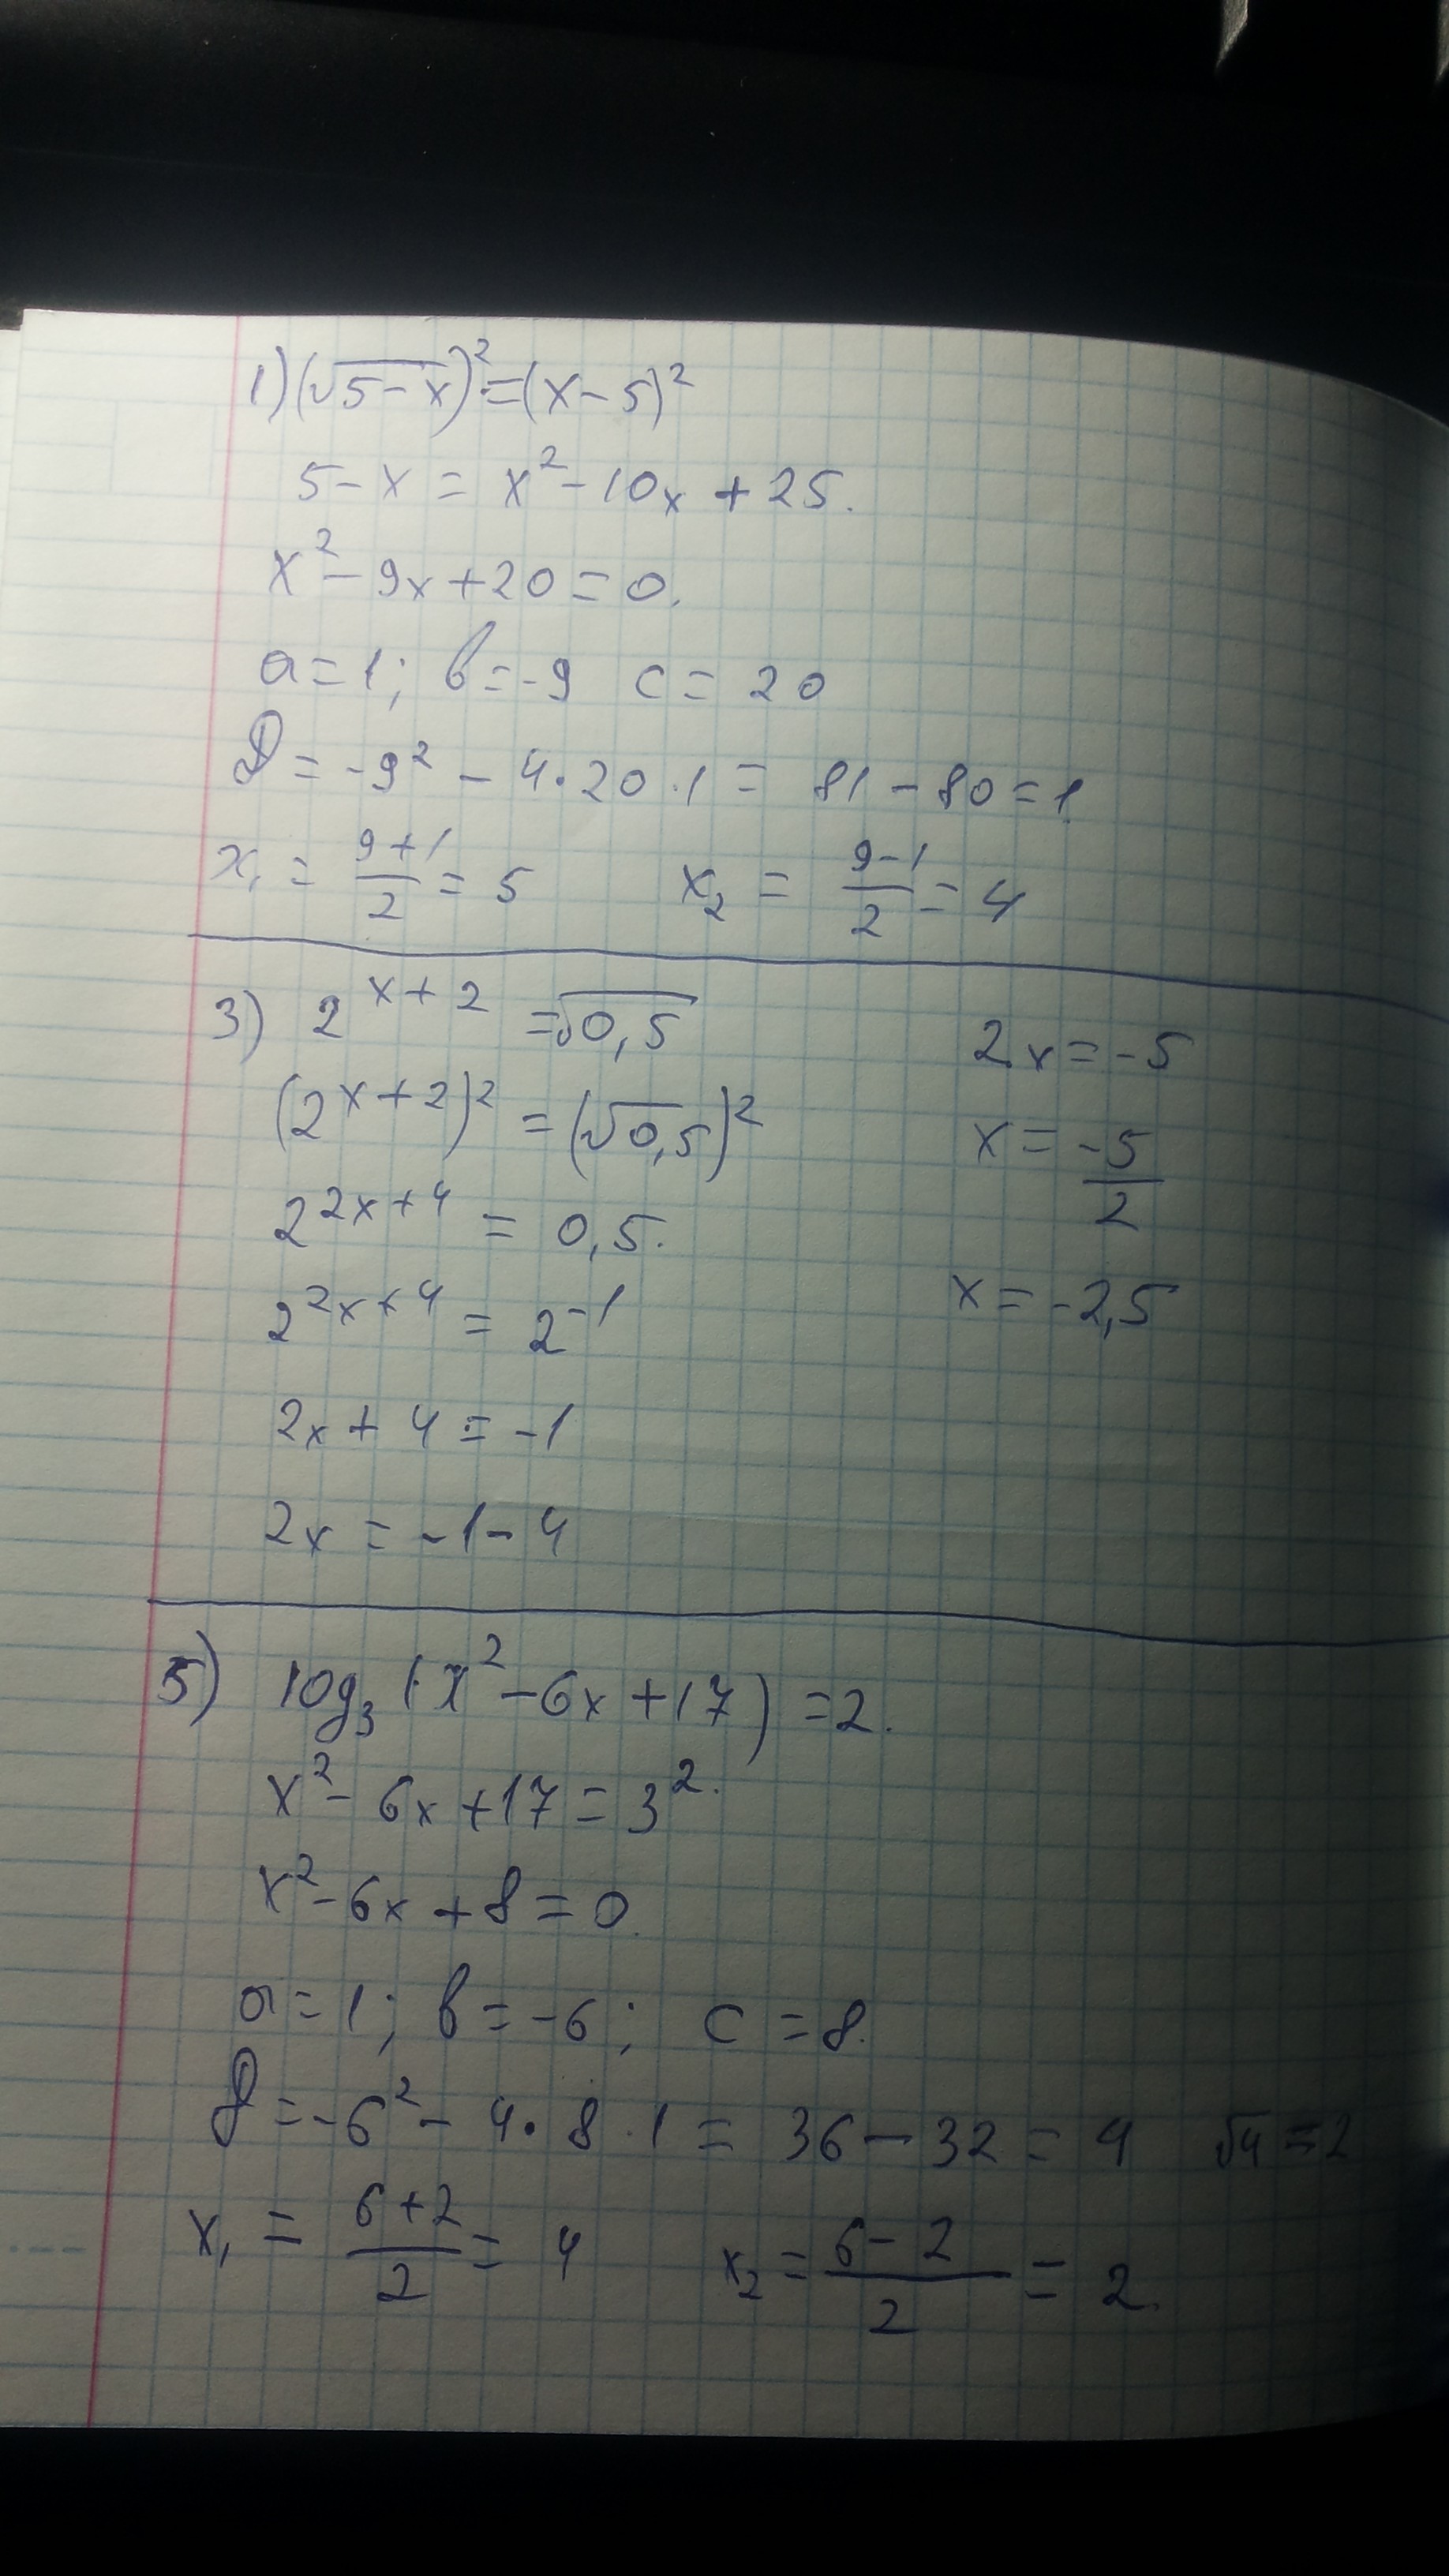 1) (√5-x)² = (x-5)²
5-x = x²-10x+25.
x²-9x+20=0.
a=1; b=-9 c=20
D=-9²-4·20·1=81-80=1
x₁=9+1/2=5 x₂=9-1/2=4
3) 2^x+2=√0,5
(2^x+2)²=(√0,5)²
2^2x+4=0,5.
2^2x+4=2^-1
2x+4=-1
2x=-1-4
2x=-5
x=-5/2
x=-2,5
5) log₃(x²-6x+17)=2.
x²-6x+17=3².
x²-6x+8=0
a=1; b=-6; c=8.
D=-6²-4·8·1=36-32=4 √4=2
x₁=6+2/2=4 x₂=6-2/2=2.